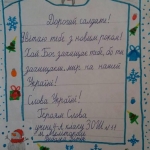 Дорогий солдате!
Вітаю тебе з новим роком!
Хай Бог захищає тебе, бо ти
захищаєш мир на нашій
Україні!
Слава Україні!
Героям Слава
учень 4-А класу ЗОШ №
м.